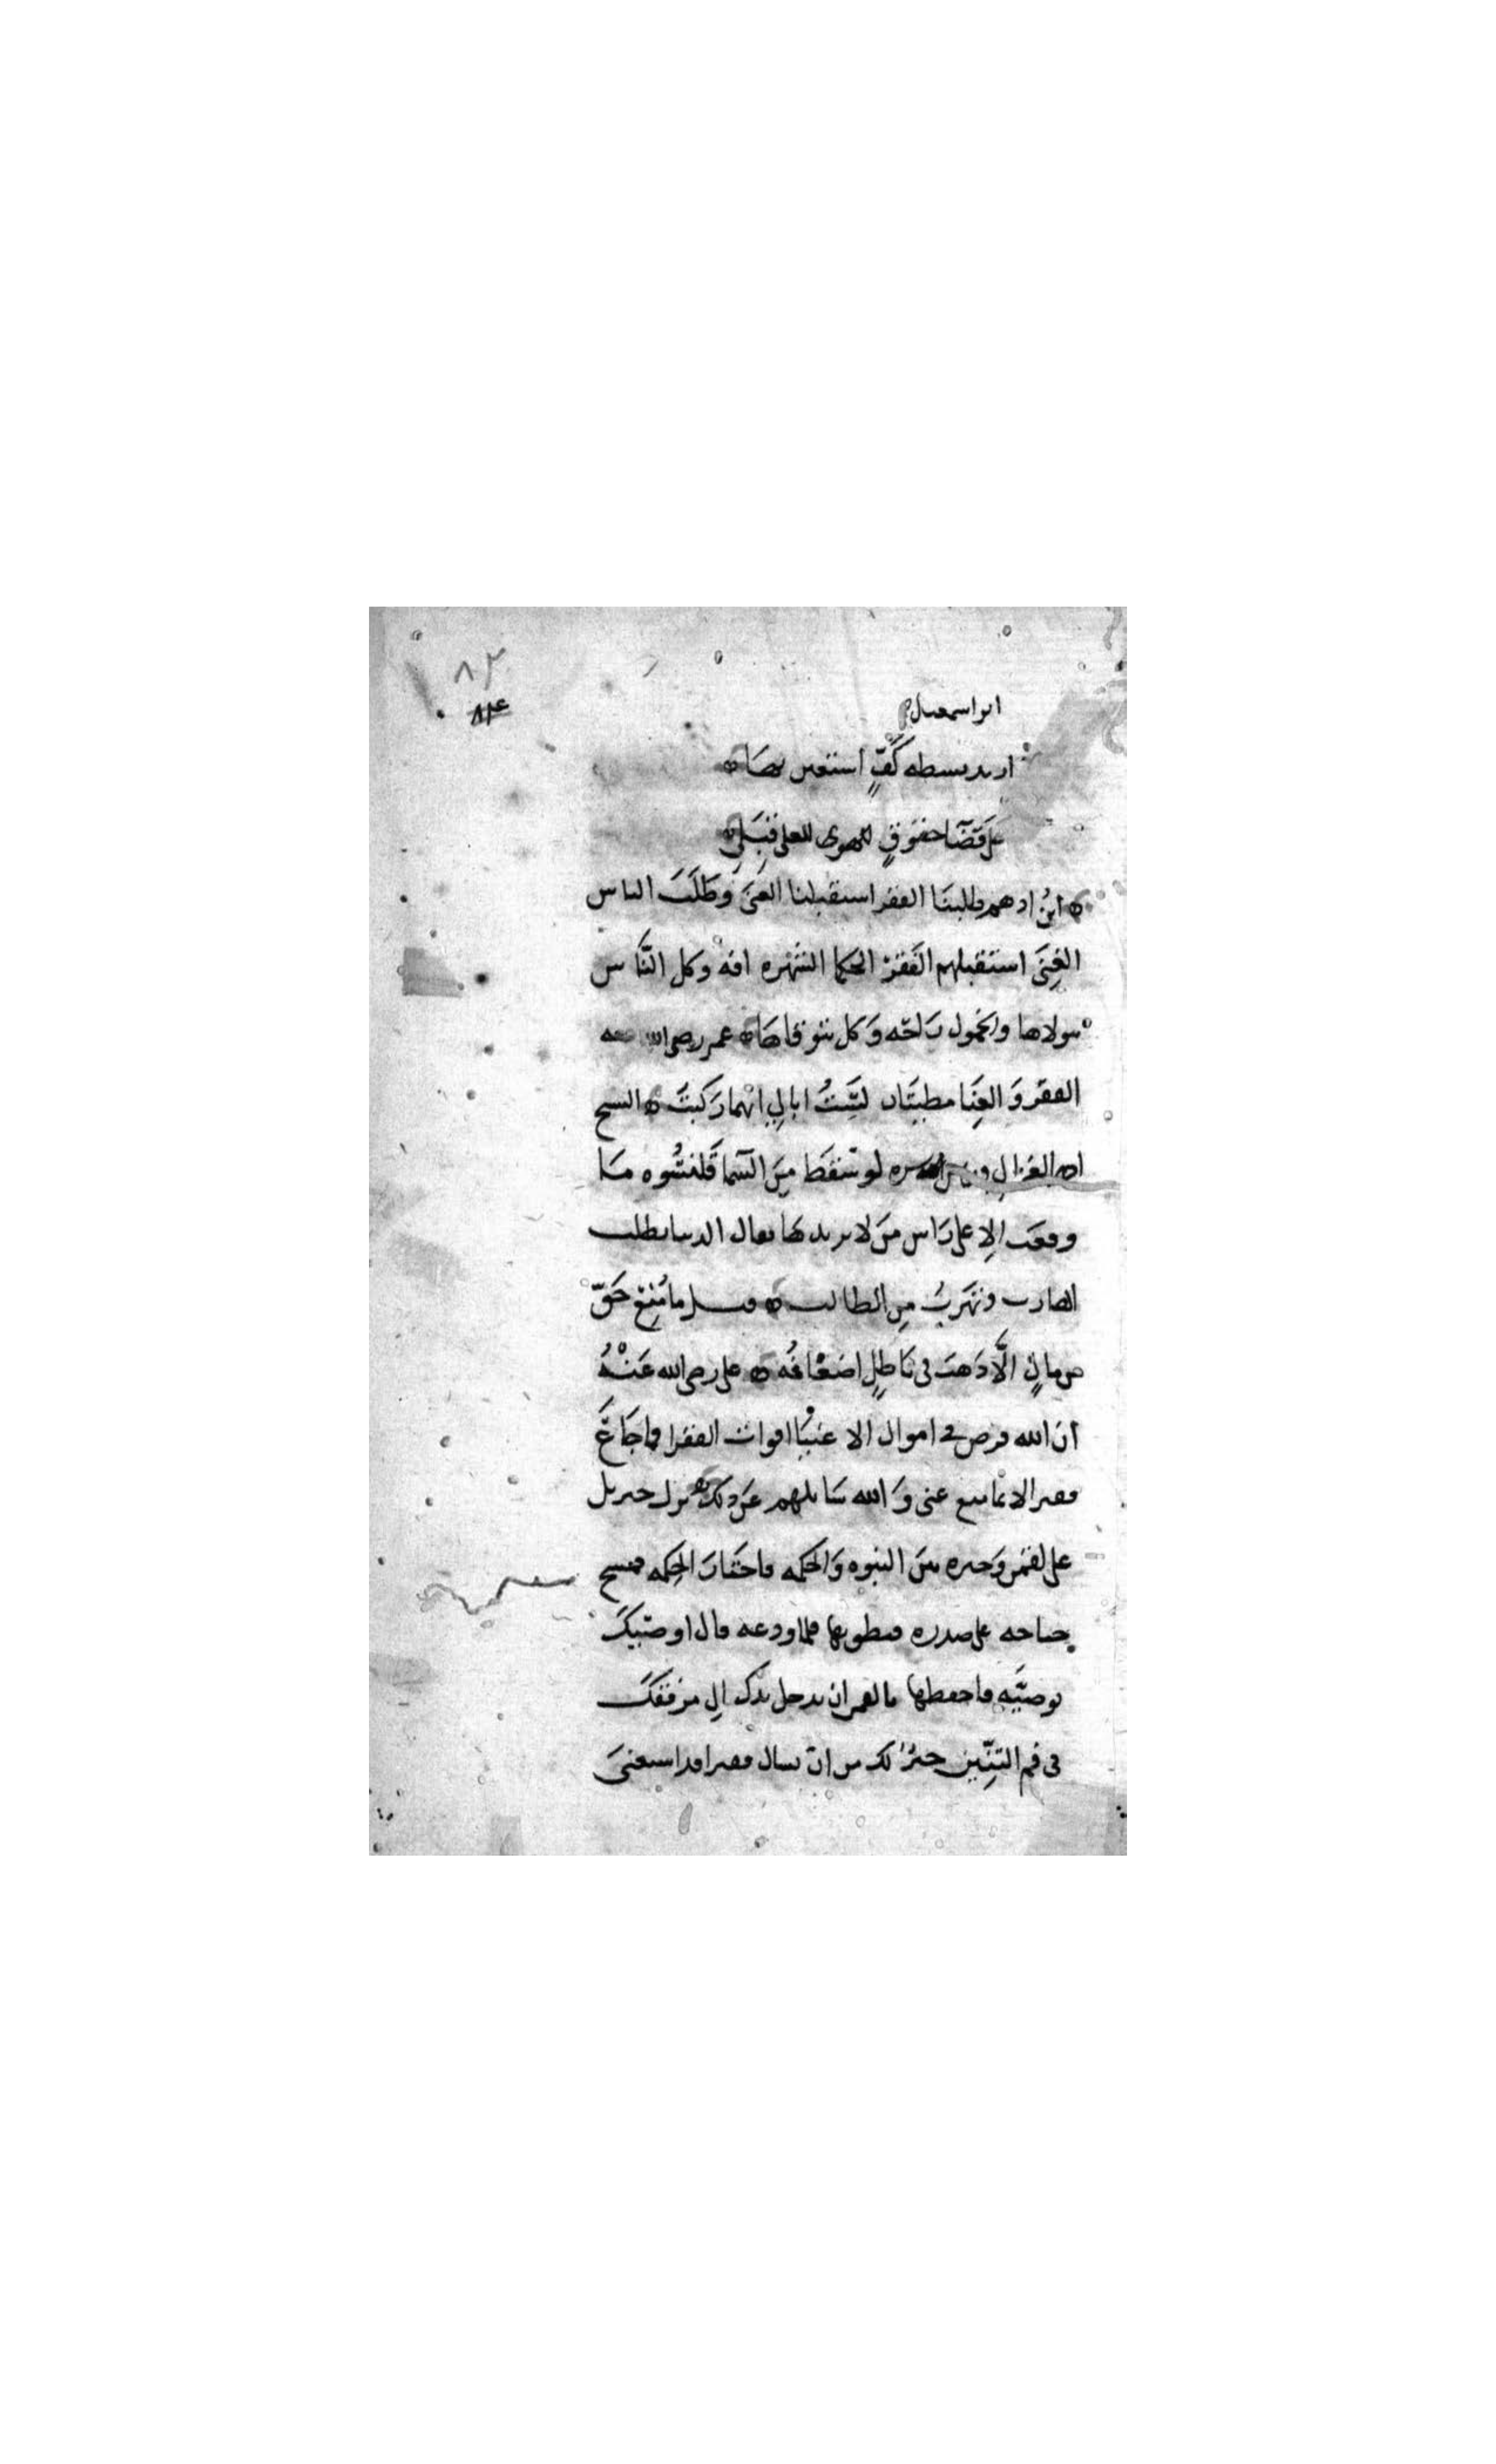 ٨٣
٨٣
ابو اسمعيل
اريد بسطه كَفٍّ استعين بهَا
على قضآ حقوقٍ للعلى قِبَلِي
ابنُ ادهم طلبنَا الفقر استقبلنا الغِنَى وطَلَبَ الناس
الغِنَى استقبلهم الفَقرُ الحكما الشهره افه وكل النَّاس
يتولاها والخمول رَاحَه وَكل يتوقاهَا عمر رضى الله عنه
الفقر وَالغِنَا مطيتَان لسْتُ ابالِي ايهما رَكبتُ الشيخ
الغزالي لو سَقَط مِنَ السَّما قَلنسُوه مَا
وقعَت الا على رَاس مَن لا يريدهَا يقال الدنيا تطلب
الهارب وتهرَبُ مِن الطالب قيل ما مُنِعَ حَقّ
من مالٍ الَّا ذهَبَ فى بَاطِلٍ اضعَافُه على رضى الله عَنْهُ
ان الله فرض فى اموال الاغنيَا اقوات الفقرا فما جَاعَ
فقير الا بمَا منع غنى وَالله سَايلهم عَن ذلك نزل جبريل
على لقمن وَخيره بين النبوه وَالحكمه فاختَار الحِكمه فمسح
جناحه على صدره فنطق بها فلما ودعه قال اوصيك
بوصيَّهٍ فاحفظها يا لقمن ان تدخل يدك الى مرفقك
فى فم التِنِّين خيرٌ لك من ان تسال فقيرا قد استغنى